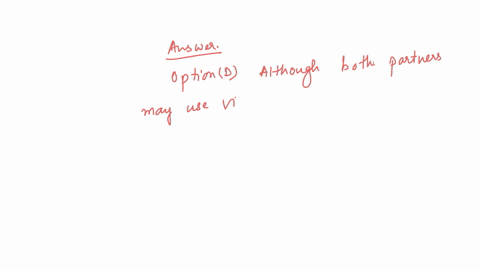 Answer.
Option(D) Although both partners
may use vi